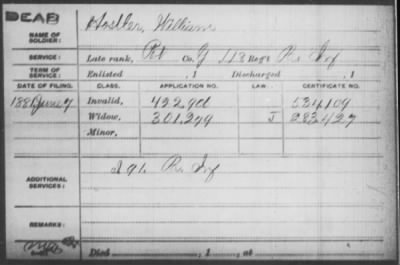 DEAD
NAME OF SOLDIER: Hostler, William
SERVICE: Late rank, Pvt Co. G 113 Reg't Pa. Inf
TERM OF SERVICE: Enlisted , 1 Discharged , 1
DATE OF FILING. CLASS. APPLICATION NO. LAW. CERTIFICATE NO.
June 7 Invalid, 422.901 534109
Widow, 301,249 J 283427
Minor,
ADDITIONAL SERVICES: I 91. Pa. Inf
REMARKS:
Died , 1 , at